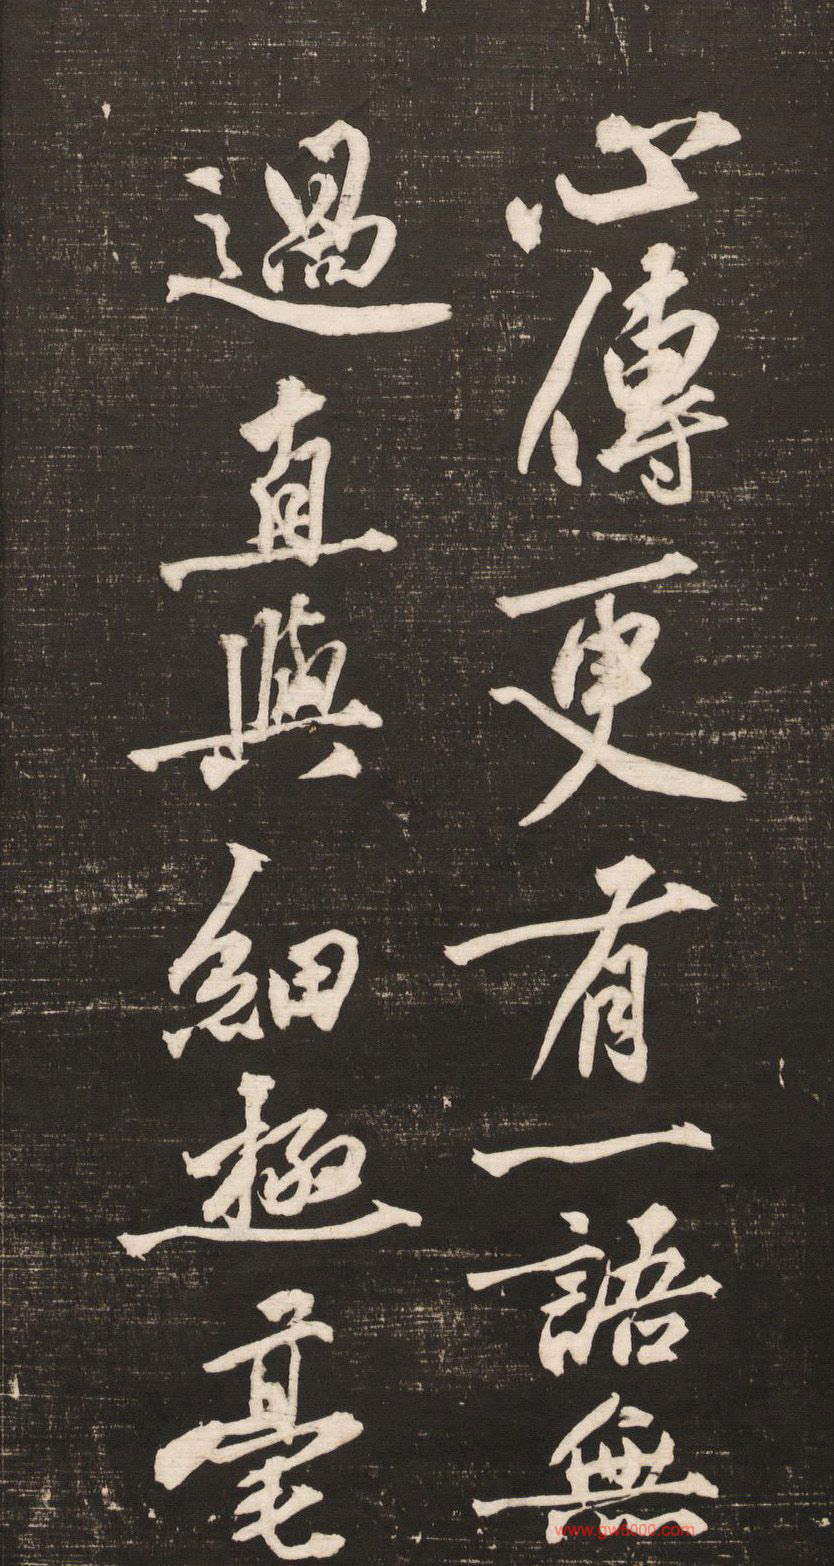 心傳更有一語無
過直與細極毫
www.gw8000.com